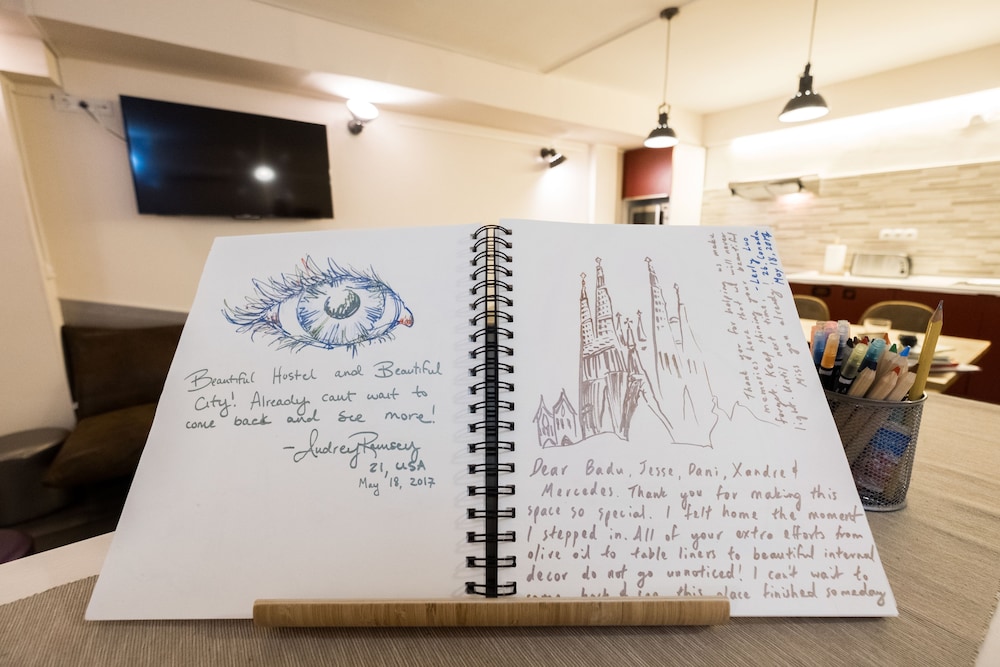 Beautiful Hostel and Beautiful
City! Already cant wait to
come back and see more!
—Audrey Ramsey
21, USA
May 18, 2017
Dear Badu, Jesse, Dani, Xandre &
Mercedes. Thank you for making this
space so special. I felt home the moment
I stepped in. All of your extra efforts from
olive oil to table liners to beautiful internal
decor do not go unnoticed! I can't wait to
come back & see this place finished someday
Thank you for helping us make
memories here that I will never
forget. Keep shining your beautiful
light. Until next time!
Miss you already
Luo
26, Canada
May 18, 2017